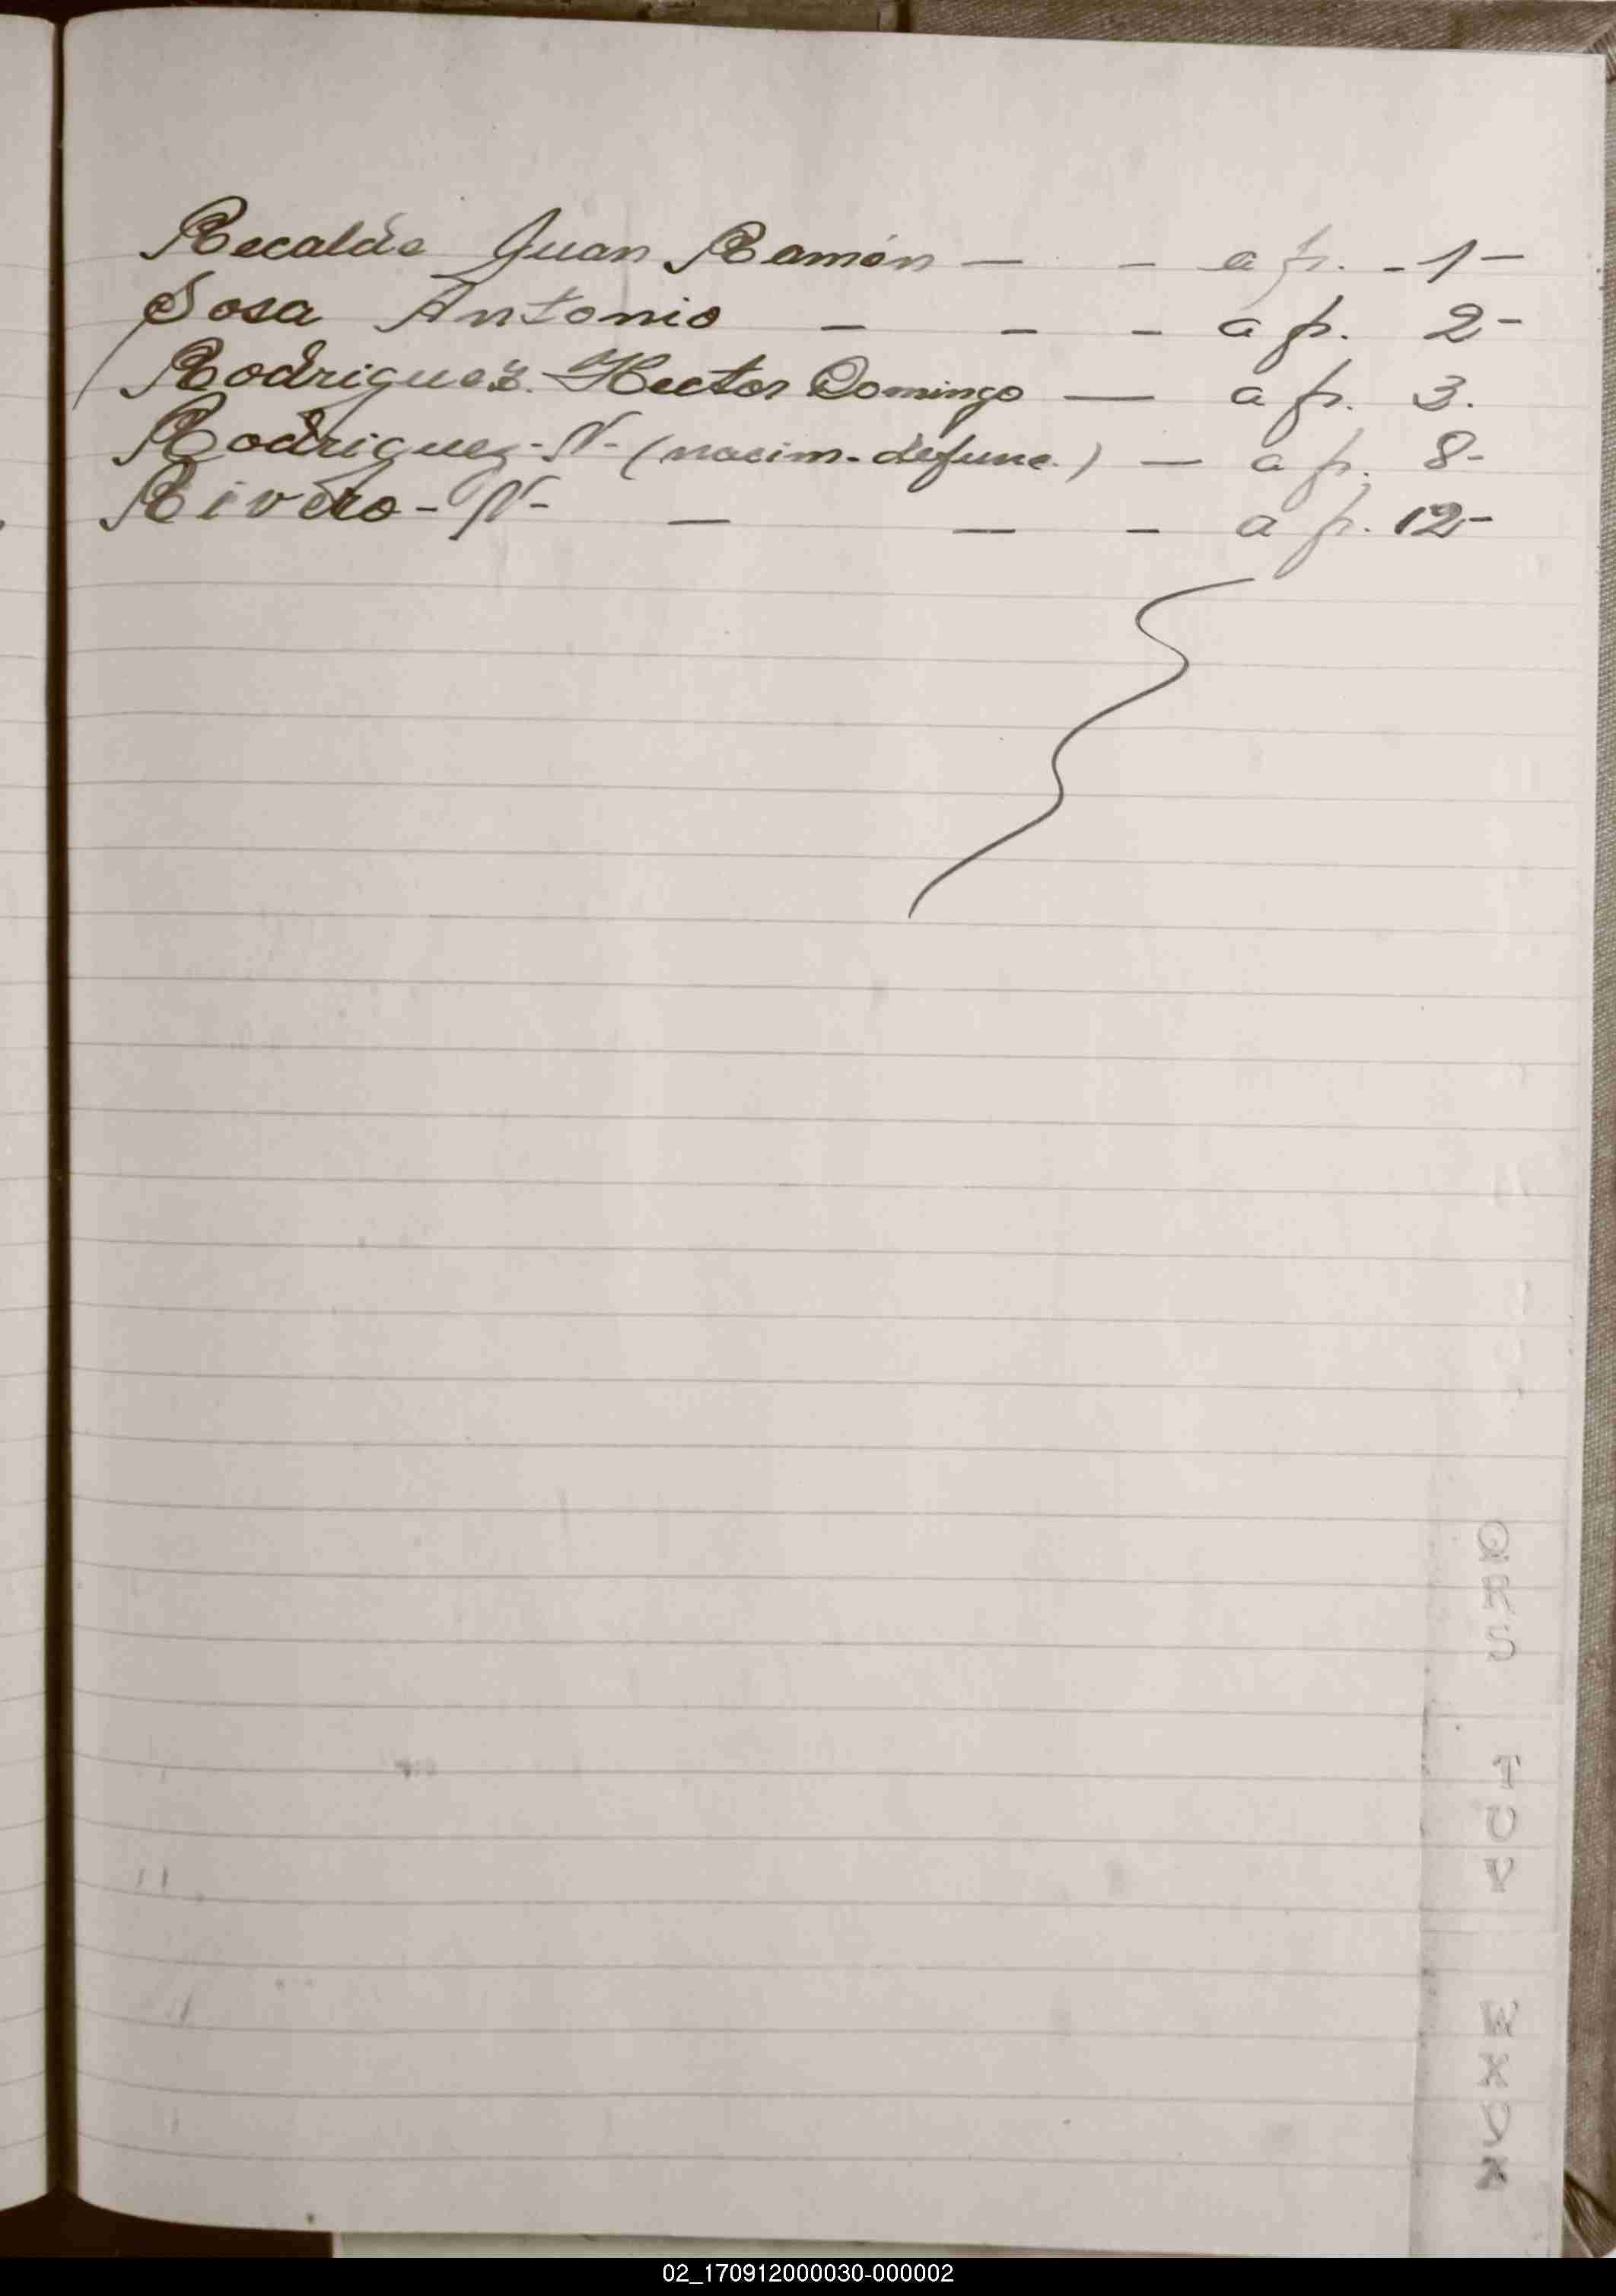 Recalde Juan Ramón — - a f. - 1 -
Sosa Antonio - - - a f. 2 -
Rodriguez. Hector Domingo — a f. 3.
Rodriguez - N - (nacim - defunc.) — a f. 8 -
Rivero - N - — — - a f. 12 -
Q
R
S
T
U
V
W
X
Y
Z
02_170912000030-000002